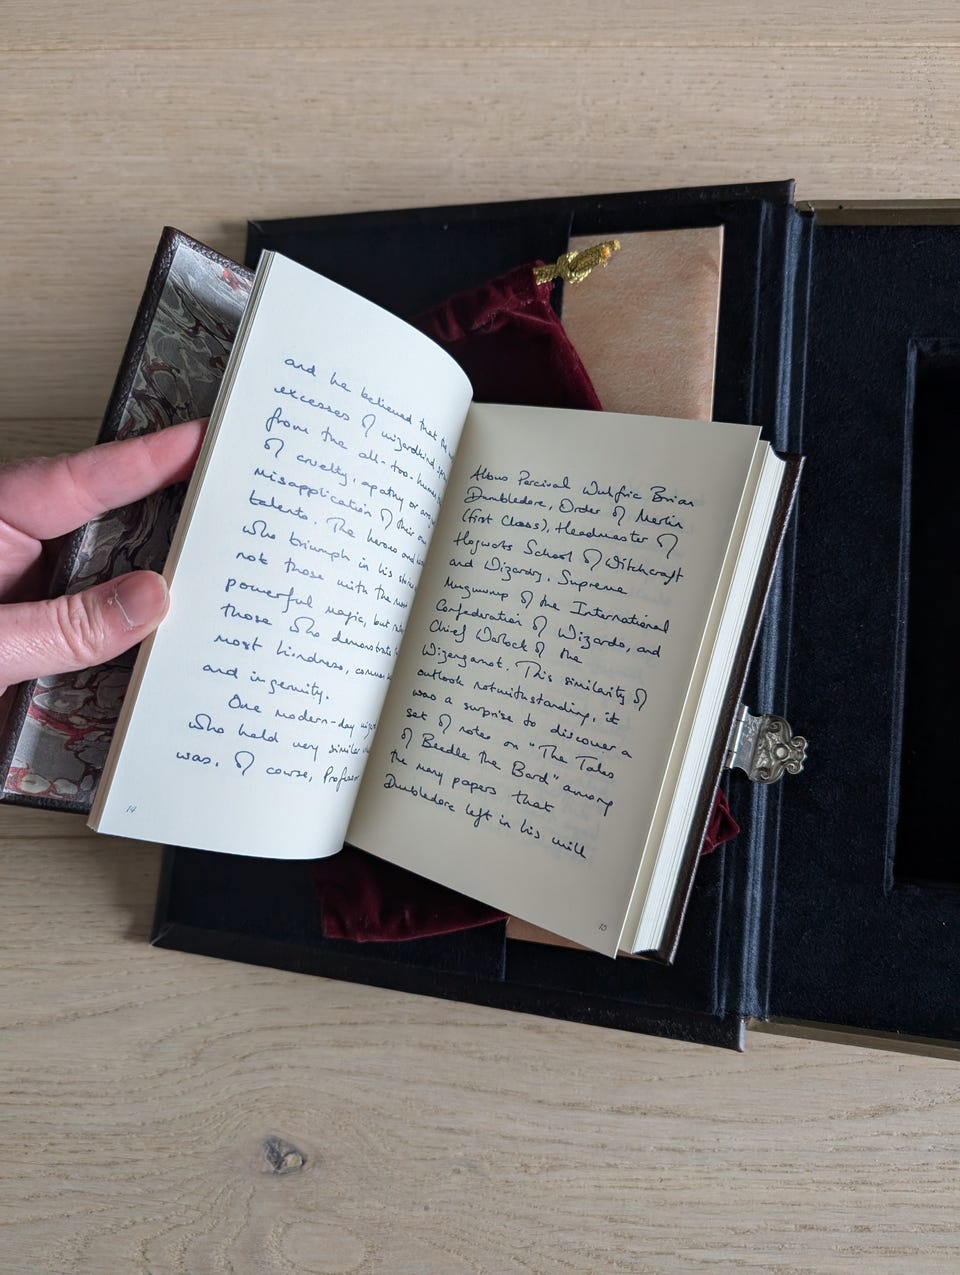 and he believed that the
excesses of wizardkind
from the all-too-human
of cruelty, apathy or
misapplication of their own
talents. The heroes and
who triumph in his
not those with the most
powerful magic, but
those who demonstrate
most kindness, common
and ingenuity.
One modern-day
who held very similar
was, of course, Professor
14
Albus Percival Wulfric Brian
Dumbledore, Order of Merlin
(First Class), Headmaster of
Hogwarts School of Witchcraft
and Wizardry, Supreme
Mugwump of the International
Confederation of Wizards, and
Chief Warlock of the
Wizengamot. This similarity of
outlook notwithstanding, it
was a surprise to discover a
set of notes on "The Tales
of Beedle the Bard" among
the many papers that
Dumbledore left in his will
15